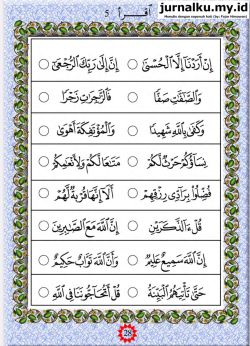 jurnalku.my.id
Menulis dengan sepenuh hati (by: Fajar Himawan)
اقرأ 5
إِنْ أَرَدْنَا إِلَّا الْحُسْنَى ○ إِنَّ إِلَى رَبِّكَ الرُّجْعَى
وَالصَّفَّتِ صَفًّا ○ فَالزَّجِرَتِ زَجْرًا
وَكَفَى بِاللَّهِ شَهِيدًا ○ وَالْمُؤْتَفِكَةَ أَهْوَى
نِسَاؤُكُمْ حَرْثٌ لَكُمْ ○ مَتَعًا لَكُمْ وَلِأَنْعَمِكُمْ
فُضِّلُوا بِرَادِّي رِزْقِهِمْ ○ أَلَا إِنَّهَا قُرْبَةٌ لَهُمْ
قُلْ ءَالذَّكَرَيْنِ ○ إِنَّ اللَّهَ مَعَ الصَّبِرِينَ
إِنَّ اللَّهَ سَمِيعٌ عَلِيمٌ ○ وَأَنَّ اللَّهَ تَوَّابٌ حَكِيمٌ
حَتَّى تَأْتِيَهُمُ الْبَيِّنَةُ ○ قُلْ أَتُحَاجُّونَنَا فِي اللَّهِ
28